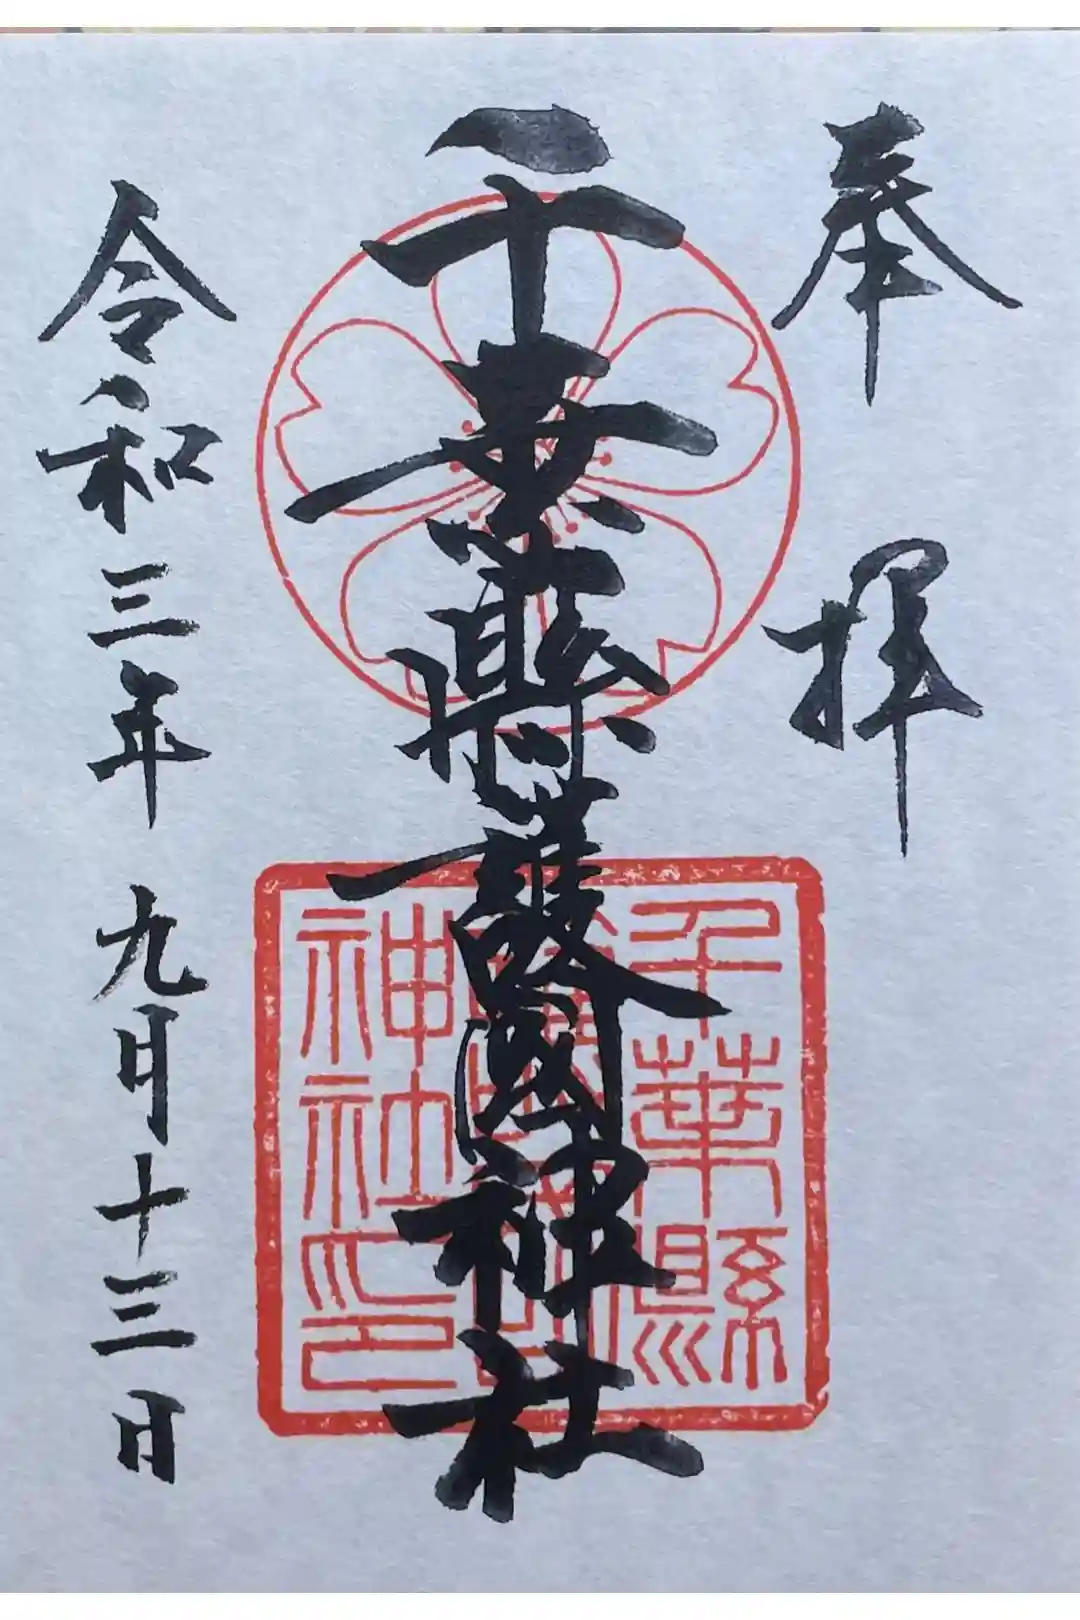 奉拝
千葉縣護國神社
千葉縣
護國
神社印
令和三年九月十三日